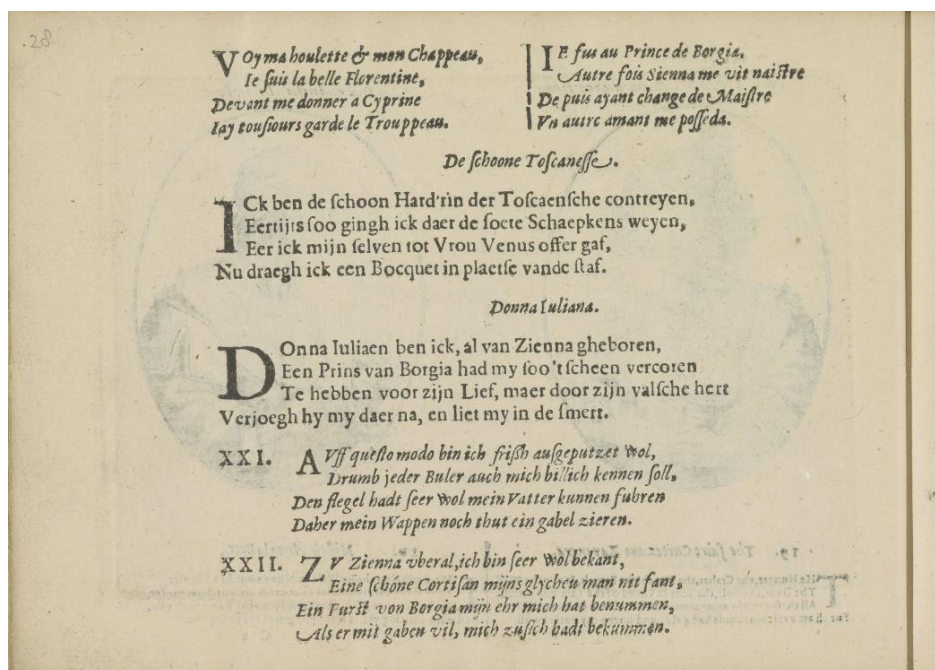 28
VOy ma houlette & mon Chappeau,
Ie suis la belle Florentine,
Devant me donner a Cyprine
Iay tousiours garde le Trouppeau.
IE fus au Prince de Borgia.
Autre fois Sienna me vit naistre
De puis ayant change de Maistre
Vn autre amant me posseda.
De schoone Toscanesse.
ICk ben de schoon Hard'rin der Toscaensche contreyen,
Eertijts soo gingh ick daer de soete Schaepkens weyen,
Eer ick mijn selven tot Vrou Venus offer gaf,
Nu draegh ick een Bocquet in plaetse vande staf.
Donna Iuliana.
DOnna Iuliaen ben ick, al van Zienna gheboren,
Een Prins van Borgia had my soo't scheen vercoren
Te hebben voor zijn Lief, maer door zijn valsche hert
Verjoegh hy my daer na, en liet my in de smert.
XXI. AVff questo modo bin ich frißh aufgeputzet wol,
Drumb jeder Buler auch mich billich kennen soll,
Den flegel hadt seer wol mein Vatter kunnen fuhren
Daher mein Wappen noch thut ein gabel zieren.
XXII. ZV Zienna vberal, ich bin seer wol bekant,
Eine schóne Cortisan mijns glycheu man nit fant,
Ein Furst von Borgia mijn ehr mich hat benummen,
Als er mit gaben vil, mich zusich hadt bekummen.